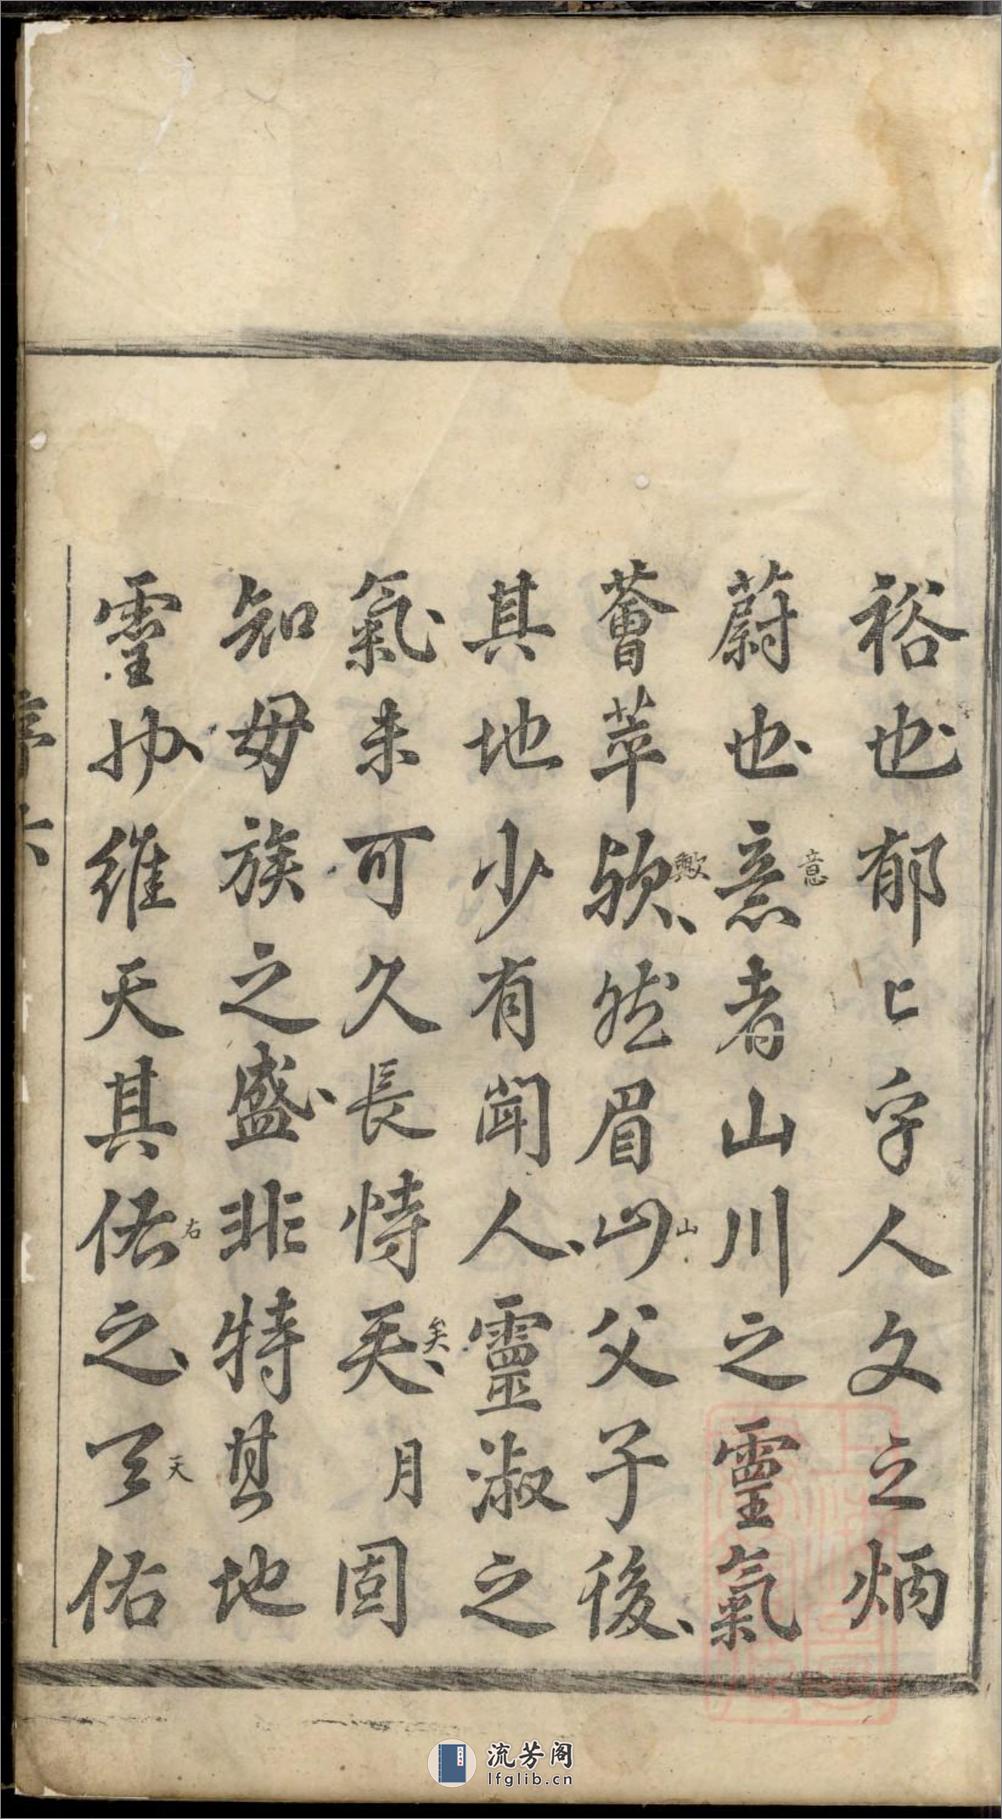 裕也郁〻乎人文之炳
蔚也意意者山川之靈氣
薈萃歟歟然眉山山父子後
其地少有聞人靈淑之
氣未可久長恃矣矣月固
知毋族之盛非特其地
靈抑維天其佑右之天天佑
序 六
流芳阁
lfglib.cn